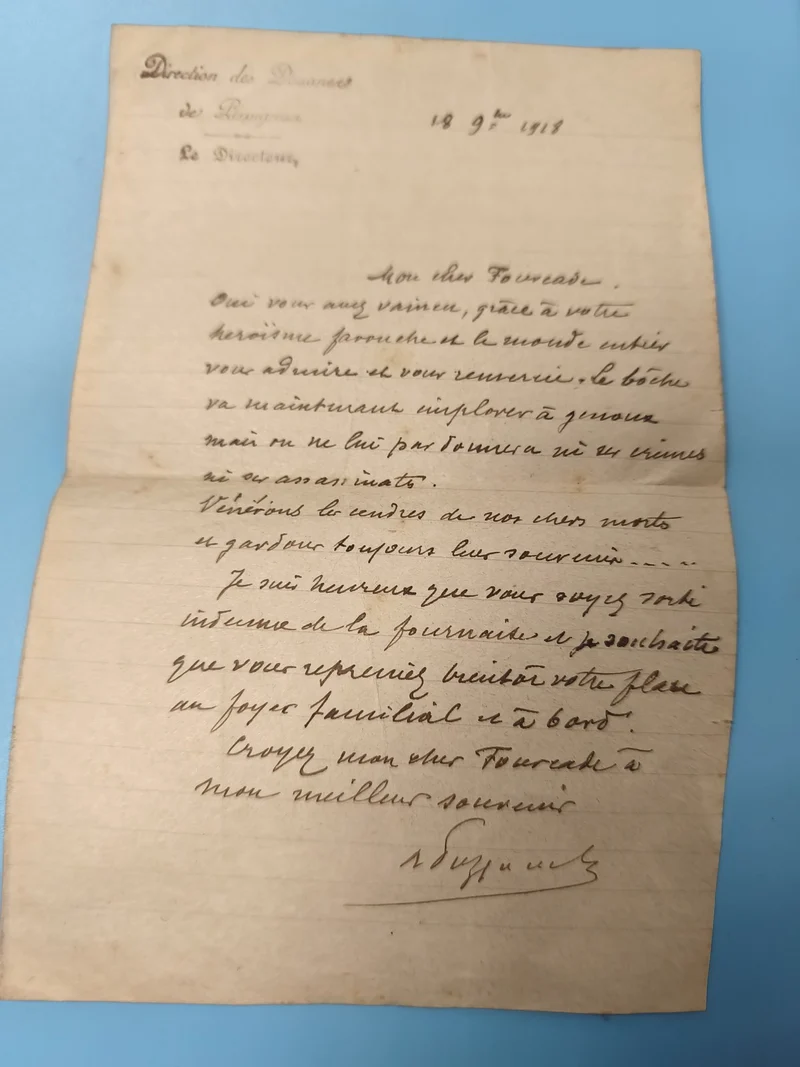 Direction des Douanes
de
Le Directeur
18 9bre 1918
Mon cher Fourcade.
Oui vous avez vaincu, grâce à votre
heroïsme farouche et le monde entier
vous admire et vous remercie. Le bôche
va maintenant implorer à genoux
mais on ne lui pardonnera ni ses crimes
ni ses assassinats.
Vénérons les cendres de nos chers morts
et gardons toujours leur souvenir.....
Je suis heureux que vous soyez sorti
indemne de la fournaise et je souhaite
que vous repreniez bientôt votre place
au foyer familial et à bord.
Croyez mon cher Fourcade à
mon meilleur souvenir